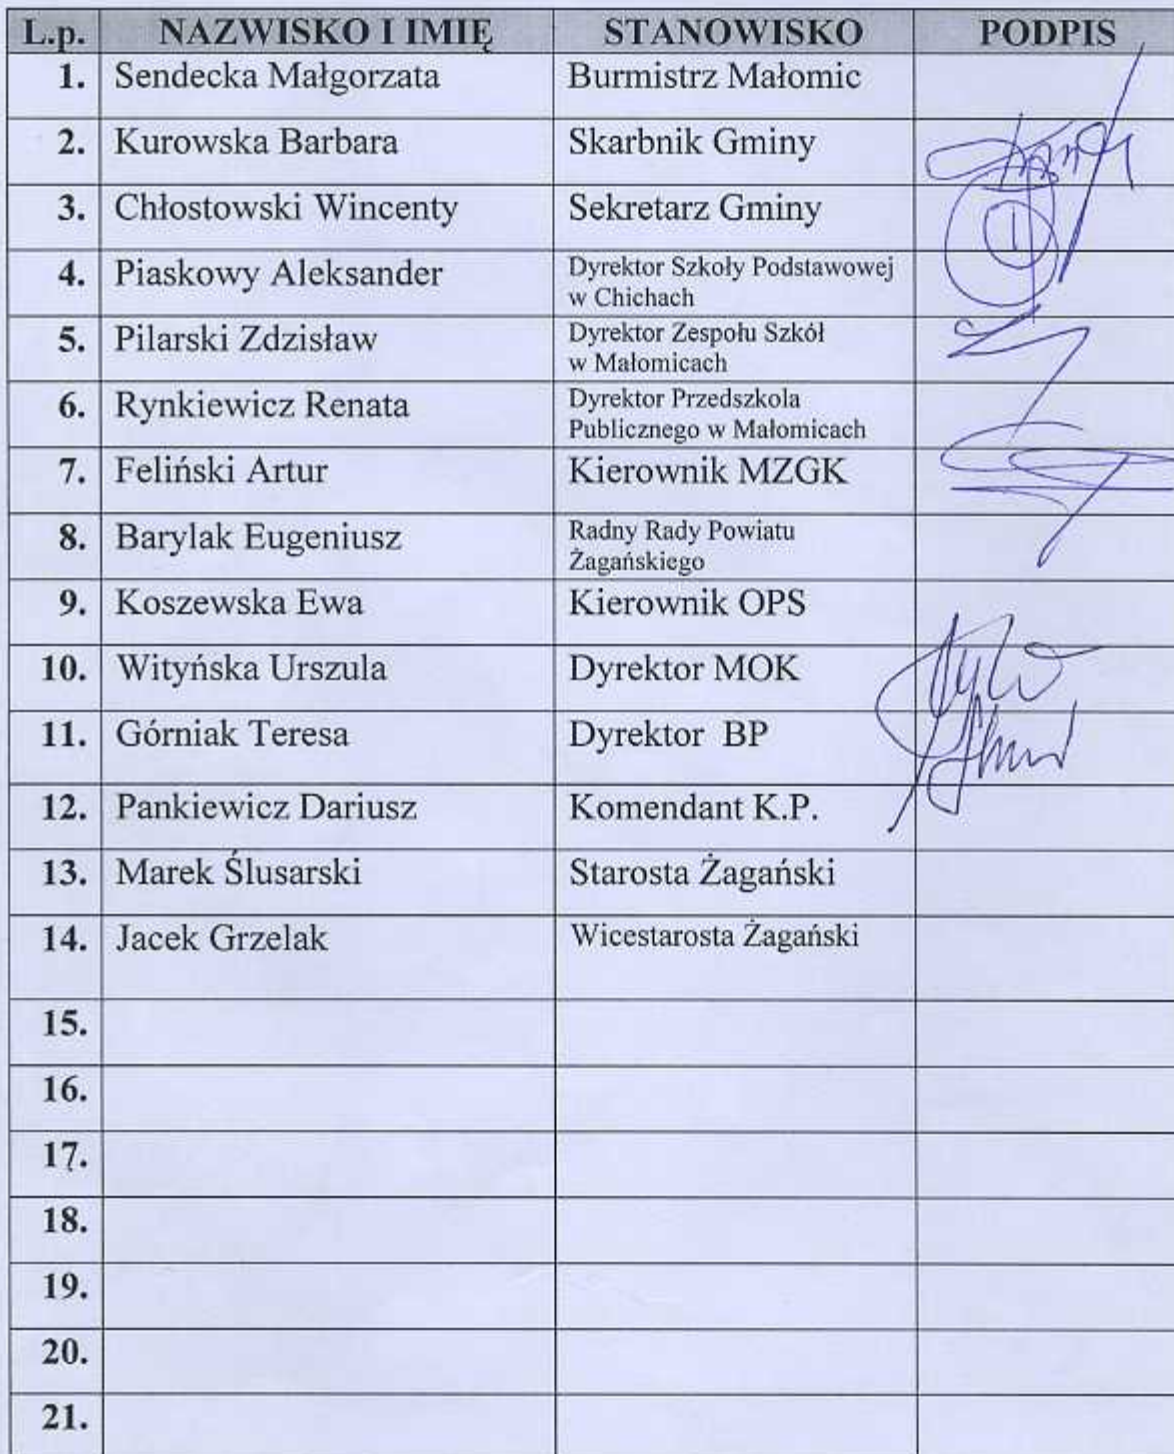 L.p. NAZWISKO I IMIĘ STANOWISKO PODPIS
1. Sendecka Małgorzata Burmistrz Małomic
2. Kurowska Barbara Skarbnik Gminy
3. Chłostowski Wincenty Sekretarz Gminy
4. Piaskowy Aleksander Dyrektor Szkoły Podstawowej
w Chichach
5. Pilarski Zdzisław Dyrektor Zespołu Szkół
w Małomicach
6. Rynkiewicz Renata Dyrektor Przedszkola
Publicznego w Małomicach
7. Feliński Artur Kierownik MZGK
8. Barylak Eugeniusz Radny Rady Powiatu
Żagańskiego
9. Koszewska Ewa Kierownik OPS
10. Wityńska Urszula Dyrektor MOK
11. Górniak Teresa Dyrektor BP
12. Pankiewicz Dariusz Komendant K.P.
13. Marek Ślusarski Starosta Żagański
14. Jacek Grzelak Wicestarosta Żagański
15.
16.
17.
18.
19.
20.
21.